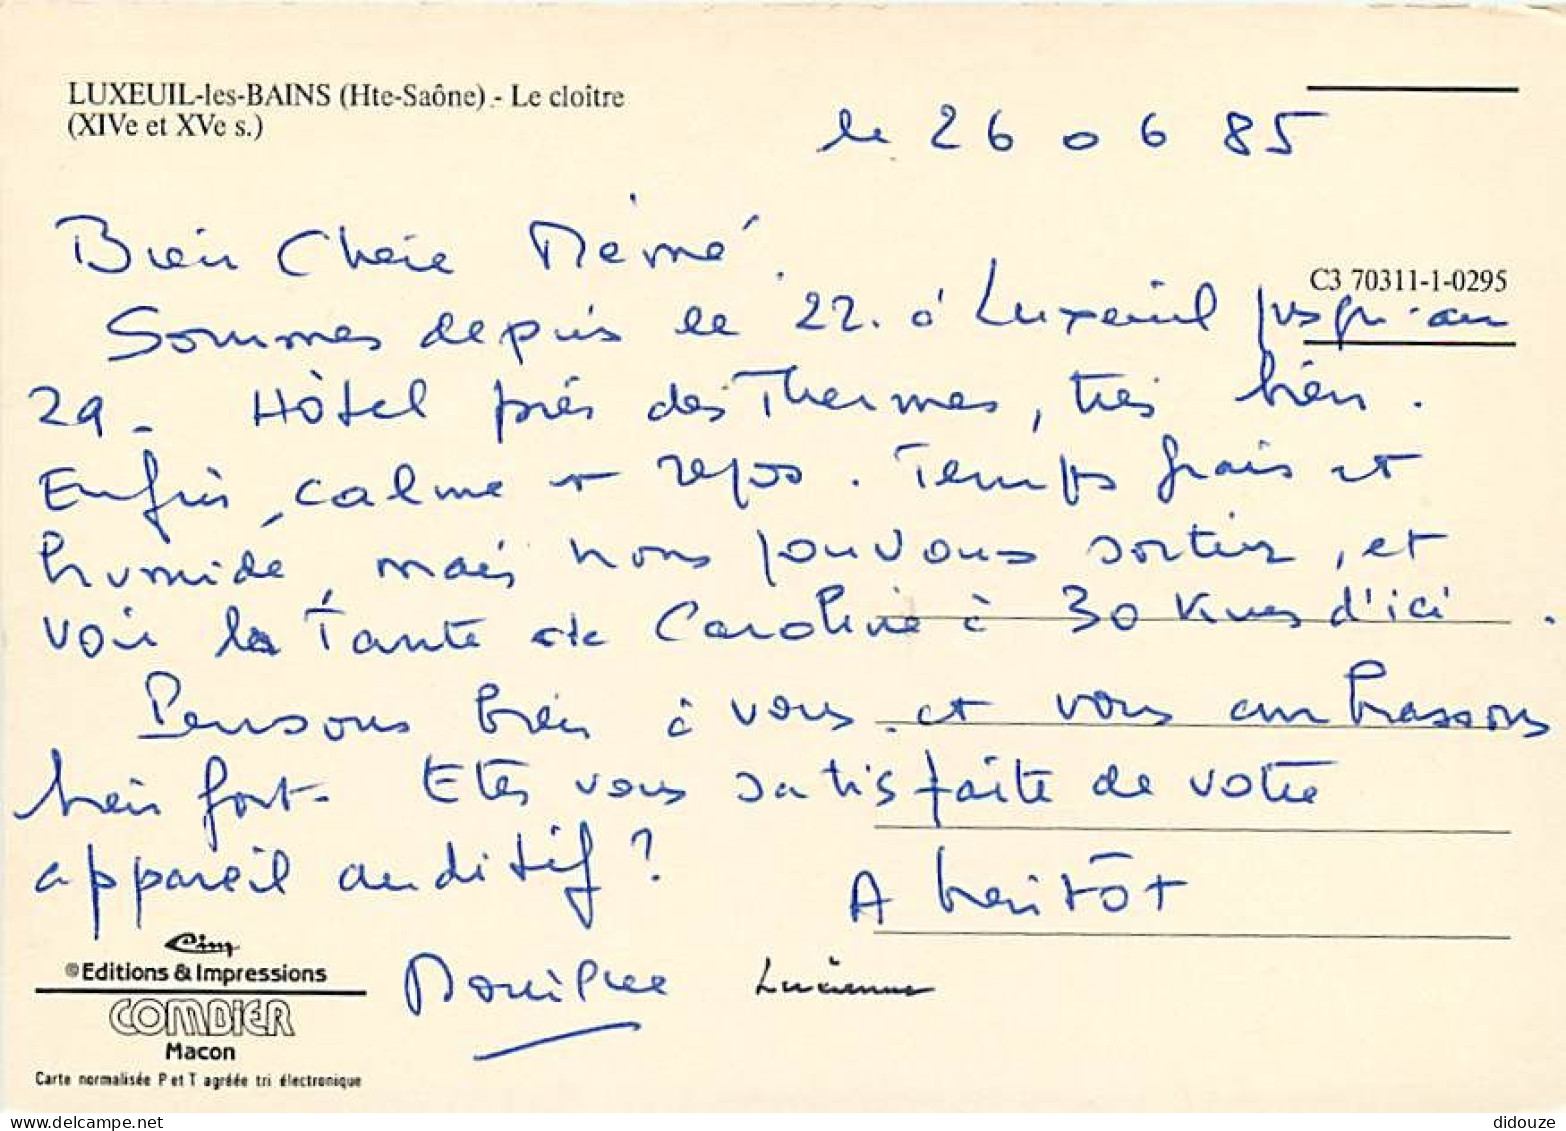 LUXEUIL-les-BAINS (Hte-Saône) - Le cloître
(XIVe et XVe s.)
le 26 06 85
Bien Chère Mémé.
C3 70311-1-0295
Sommes depuis le 22. à Luxeuil jusqu'au
29. Hôtel près des Thermes, très bien.
Enfin, calme et repos. Temps frais et
humide, mais nous pouvons sortir, et
voir la Tante de Caroline à 30 Kms d'ici.
Pensons bien à vous. et vous embrassons
bien fort. Etes vous satisfaite de votre
appareil auditif ? A bientôt
Cim
©Editions & Impressions
COMBIER
Macon
Carte normalisée P et T agréée tri électronique
Lucienne
delcampe.net
didouze